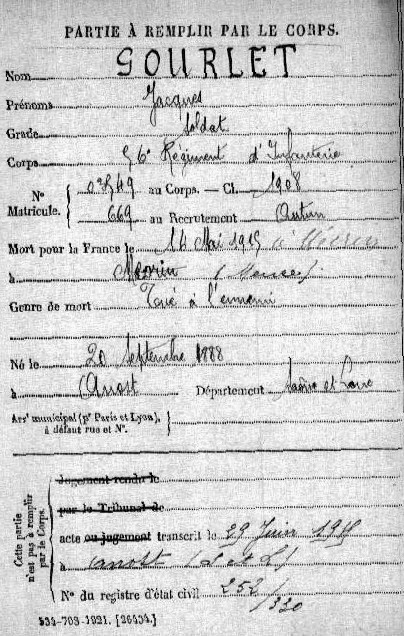 PARTIE À REMPLIR PAR LE CORPS.
Nom GOURLET
Prénoms Jacques
Grade Soldat
Corps 56e Régiment d'Infanterie
N° Matricule. { 0549 au Corps. — Cl. 1908
669 au Recrutement Autun
Mort pour la France le 14 Mai 1915 à
à (Meuse)
Genre de mort Tué à l'ennemi
Né le 20 Septembre 1888
à Anost Département Saône et Loire
Arr^t municipal (p^r Paris et Lyon), à défaut rue et N°. }
Cette partie n'est pas à remplir par le Corps.
Jugement rendu le
par le Tribunal de
acte ou jugement transcrit le 29 Juin 1915
à Anost (S et L)
N° du registre d'état civil 252/320
534-708-1921. [26434.]